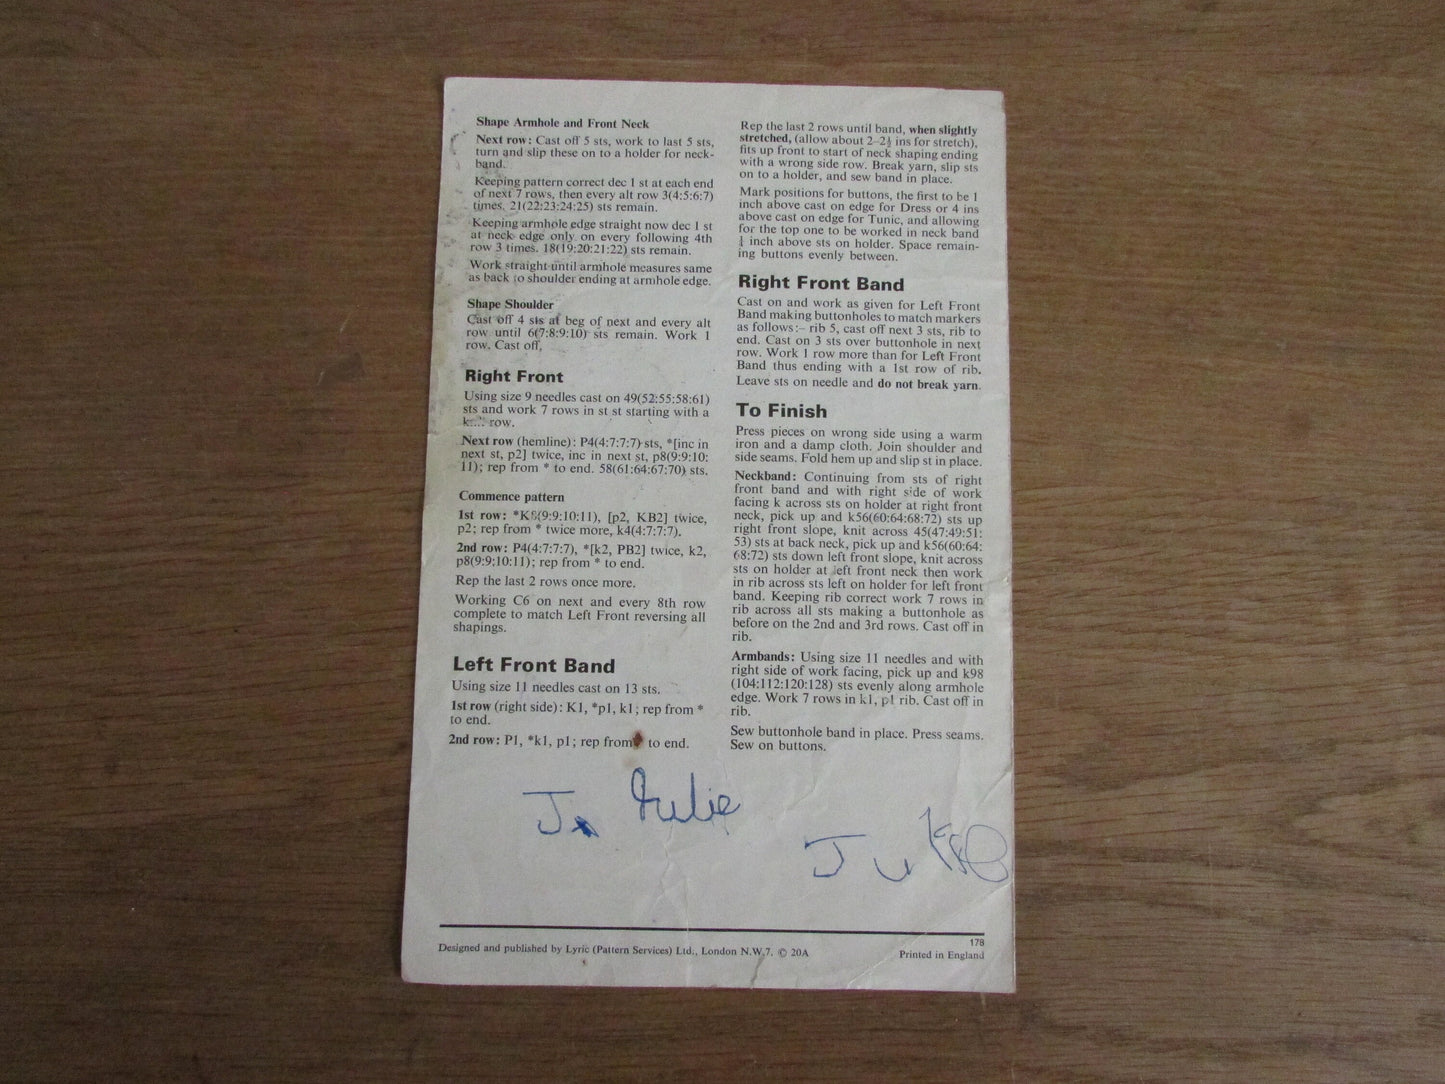 Shape Armhole and Front Neck
Next row: Cast off 5 sts, work to last 5 sts,
turn and slip these on to a holder for neck-
band.
Keeping pattern correct dec 1 st at each end
of next 7 rows, then every alt row 3(4:5:6:7)
times. 21(22:23:24:25) sts remain.
Keeping armhole edge straight now dec 1 st
at neck edge only on every following 4th
row 3 times. 18(19:20:21:22) sts remain.
Work straight until armhole measures same
as back to shoulder ending at armhole edge.
Shape Shoulder
Cast off 4 sts at beg of next and every alt
row until 6(7:8:9:10) sts remain. Work 1
row. Cast off.
Right Front
Using size 9 needles cast on 49(52:55:58:61)
sts and work 7 rows in st st starting with a
row.
Next row (hemline): P4(4:7:7:7) sts, *[inc in
next st, p2] twice, inc in next st, p8(9:9:10:
11); rep from * to end. 58(61:64:67:70) sts.
Commence pattern
1st row: *K8(9:9:10:11), [p2, KB2] twice,
p2; rep from * twice more, k4(4:7:7:7).
2nd row: P4(4:7:7:7), *[k2, PB2] twice, k2,
p8(9:9:10:11); rep from * to end.
Rep the last 2 rows once more.
Working C6 on next and every 8th row
complete to match Left Front reversing all
shapings.
Left Front Band
Using size 11 needles cast on 13 sts.
1st row (right side): K1, *p1, k1; rep from *
to end.
2nd row: P1, *k1, p1; rep from to end.
Rep the last 2 rows until band, when slightly
stretched, (allow about 2–2½ ins for stretch),
fits up front to start of neck shaping ending
with a wrong side row. Break yarn, slip sts
on to a holder, and sew band in place.
Mark positions for buttons, the first to be 1
inch above cast on edge for Dress or 4 ins
above cast on edge for Tunic, and allowing
for the top one to be worked in neck band
inch above sts on holder. Space remain-
ing buttons evenly between.
Right Front Band
Cast on and work as given for Left Front
Band making buttonholes to match markers
as follows:– rib 5, cast off next 3 sts, rib to
end. Cast on 3 sts over buttonhole in next
row. Work 1 row more than for Left Front
Band thus ending with a 1st row of rib.
Leave sts on needle and do not break yarn.
To Finish
Press pieces on wrong side using a warm
iron and a damp cloth. Join shoulder and
side seams. Fold hem up and slip st in place.
Neckband: Continuing from sts of right
front band and with right side of work
facing k across sts on holder at right front
neck, pick up and k56(60:64:68:72) sts up
right front slope, knit across 45(47:49:51:
53) sts at back neck, pick up and k56(60:64:
68:72) sts down left front slope, knit across
sts on holder at left front neck then work
in rib across sts left on holder for left front
band. Keeping rib correct work 7 rows in
rib across all sts making a buttonhole as
before on the 2nd and 3rd rows. Cast off in
rib.
Armbands: Using size 11 needles and with
right side of work facing, pick up and k98
(104:112:120:128) sts evenly along armhole
edge. Work 7 rows in k1, p1 rib. Cast off in
rib.
Sew buttonhole band in place. Press seams.
Sew on buttons.
Julie
178
Designed and published by Lyric (Pattern Services) Ltd., London N.W.7. © 20A
Printed in England